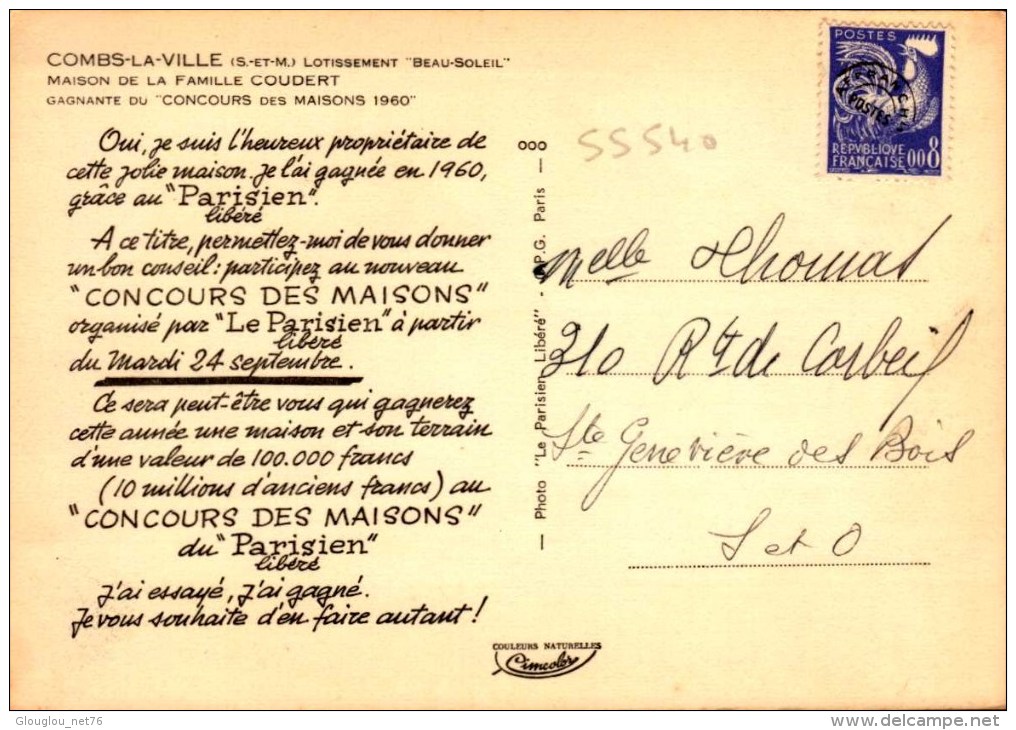 COMBS-LA-VILLE (S.-ET-M.) LOTISSEMENT "BEAU-SOLEIL"
MAISON DE LA FAMILLE COUDERT
GAGNANTE DU "CONCOURS DES MAISONS 1960"
Oui, je suis l'heureux propriétaire de
cette jolie maison. Je l'ai gagnée en 1960,
grâce au "Parisien".
libéré
A ce titre, permettez-moi de vous donner
un bon conseil : participez au nouveau
"CONCOURS DES MAISONS"
organisé par "Le Parisien" à partir
libéré
du Mardi 24 septembre.
Ce sera peut-être vous qui gagnerez
cette année une maison et son terrain
d'une valeur de 100.000 francs
(10 millions d'anciens francs) au
"CONCOURS DES MAISONS"
du "Parisien"
libéré
J'ai essayé, j'ai gagné.
Je vous souhaite d'en faire autant !
— Photo "Le Parisien Libéré" - O.P.G. Paris — 000
COULEURS NATURELLES
Cimcolor
55540
POSTES
AFFRANCHts
POSTES
REPVBLIQVE
FRANÇAISE 0,08
Melle Thomas
310 Rt de Corbeil
Ste Geneviève des Bois
S et O
Glouglou_net76
delcampe.net